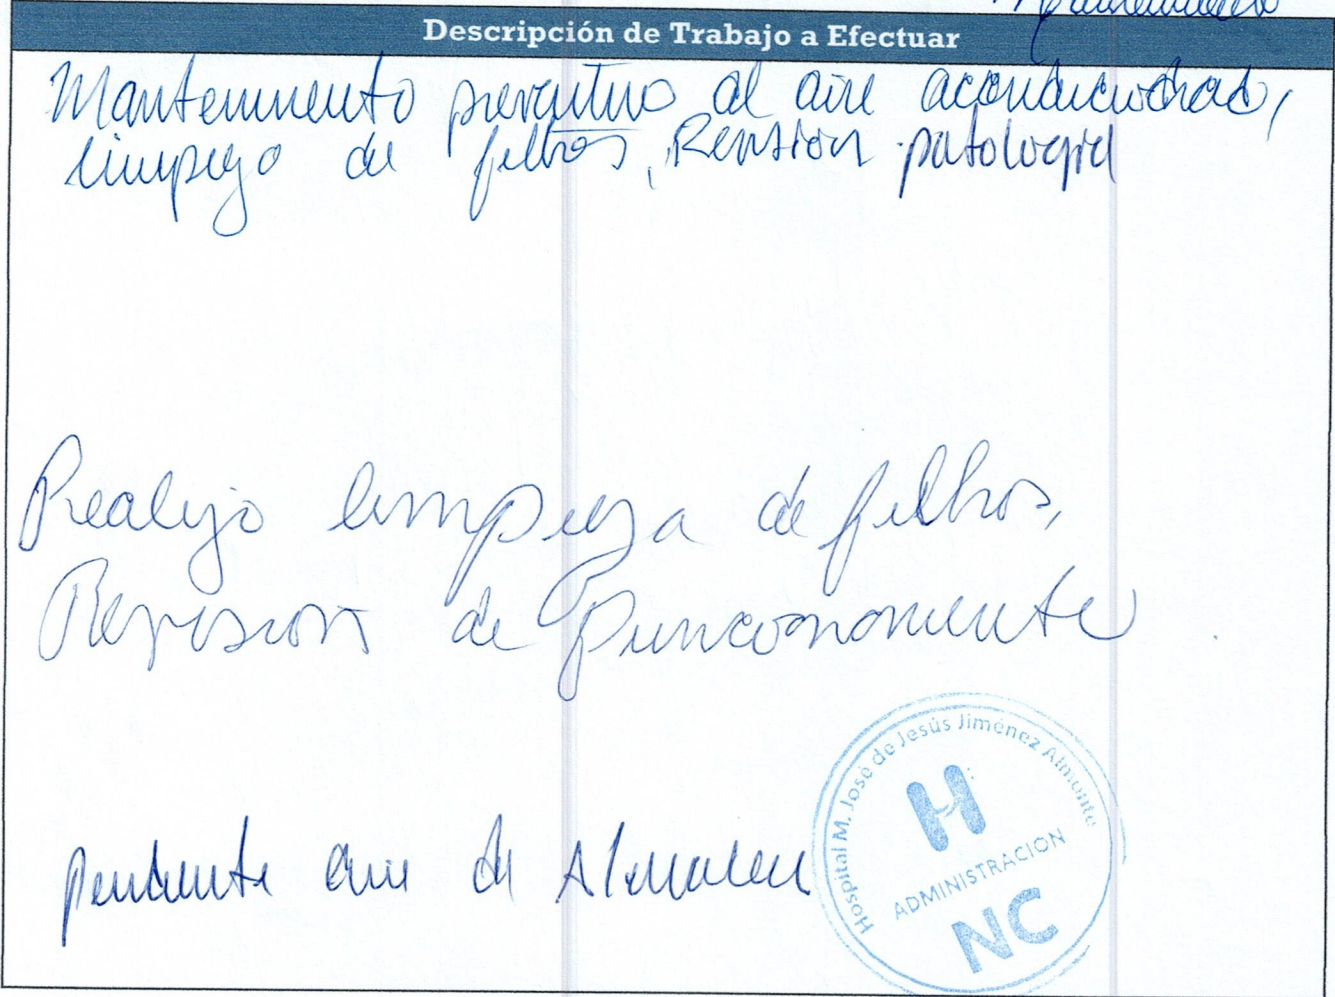 Descripción de Trabajo a Efectuar
Mantenimiento preventivo al aire acondicionado,
limpieza de filtros, Revision patologia
Realizo limpieza de filtros,
Revision de Funcionamiento
pendiente aire de Almacen
Hospital M. José de Jesús Jiménez Almonte
H
ADMINISTRACION
NC